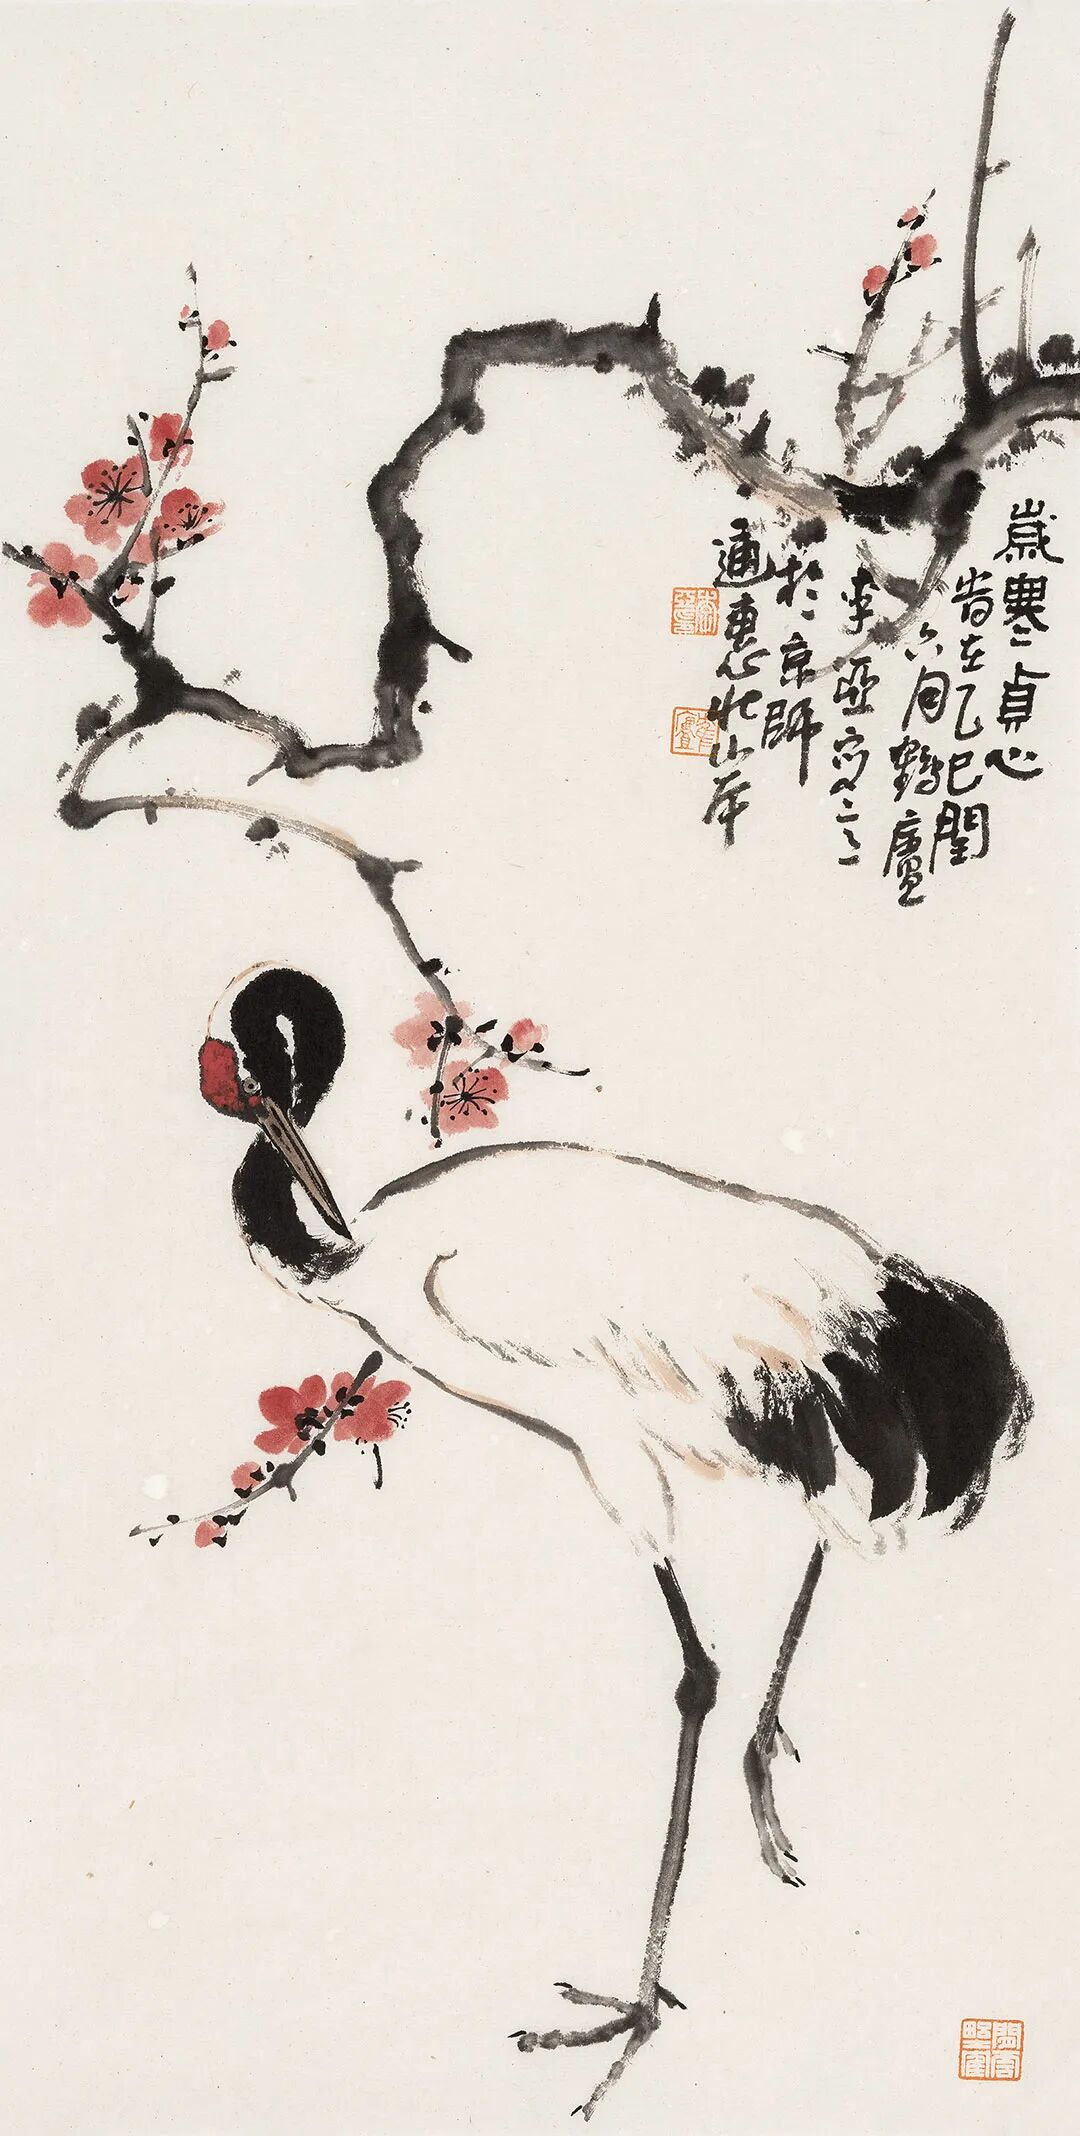 歲寒貞心
旹在乙巳閏
六月鶴廬
李亞寫之
於京師
通惠北岸
鶴廬